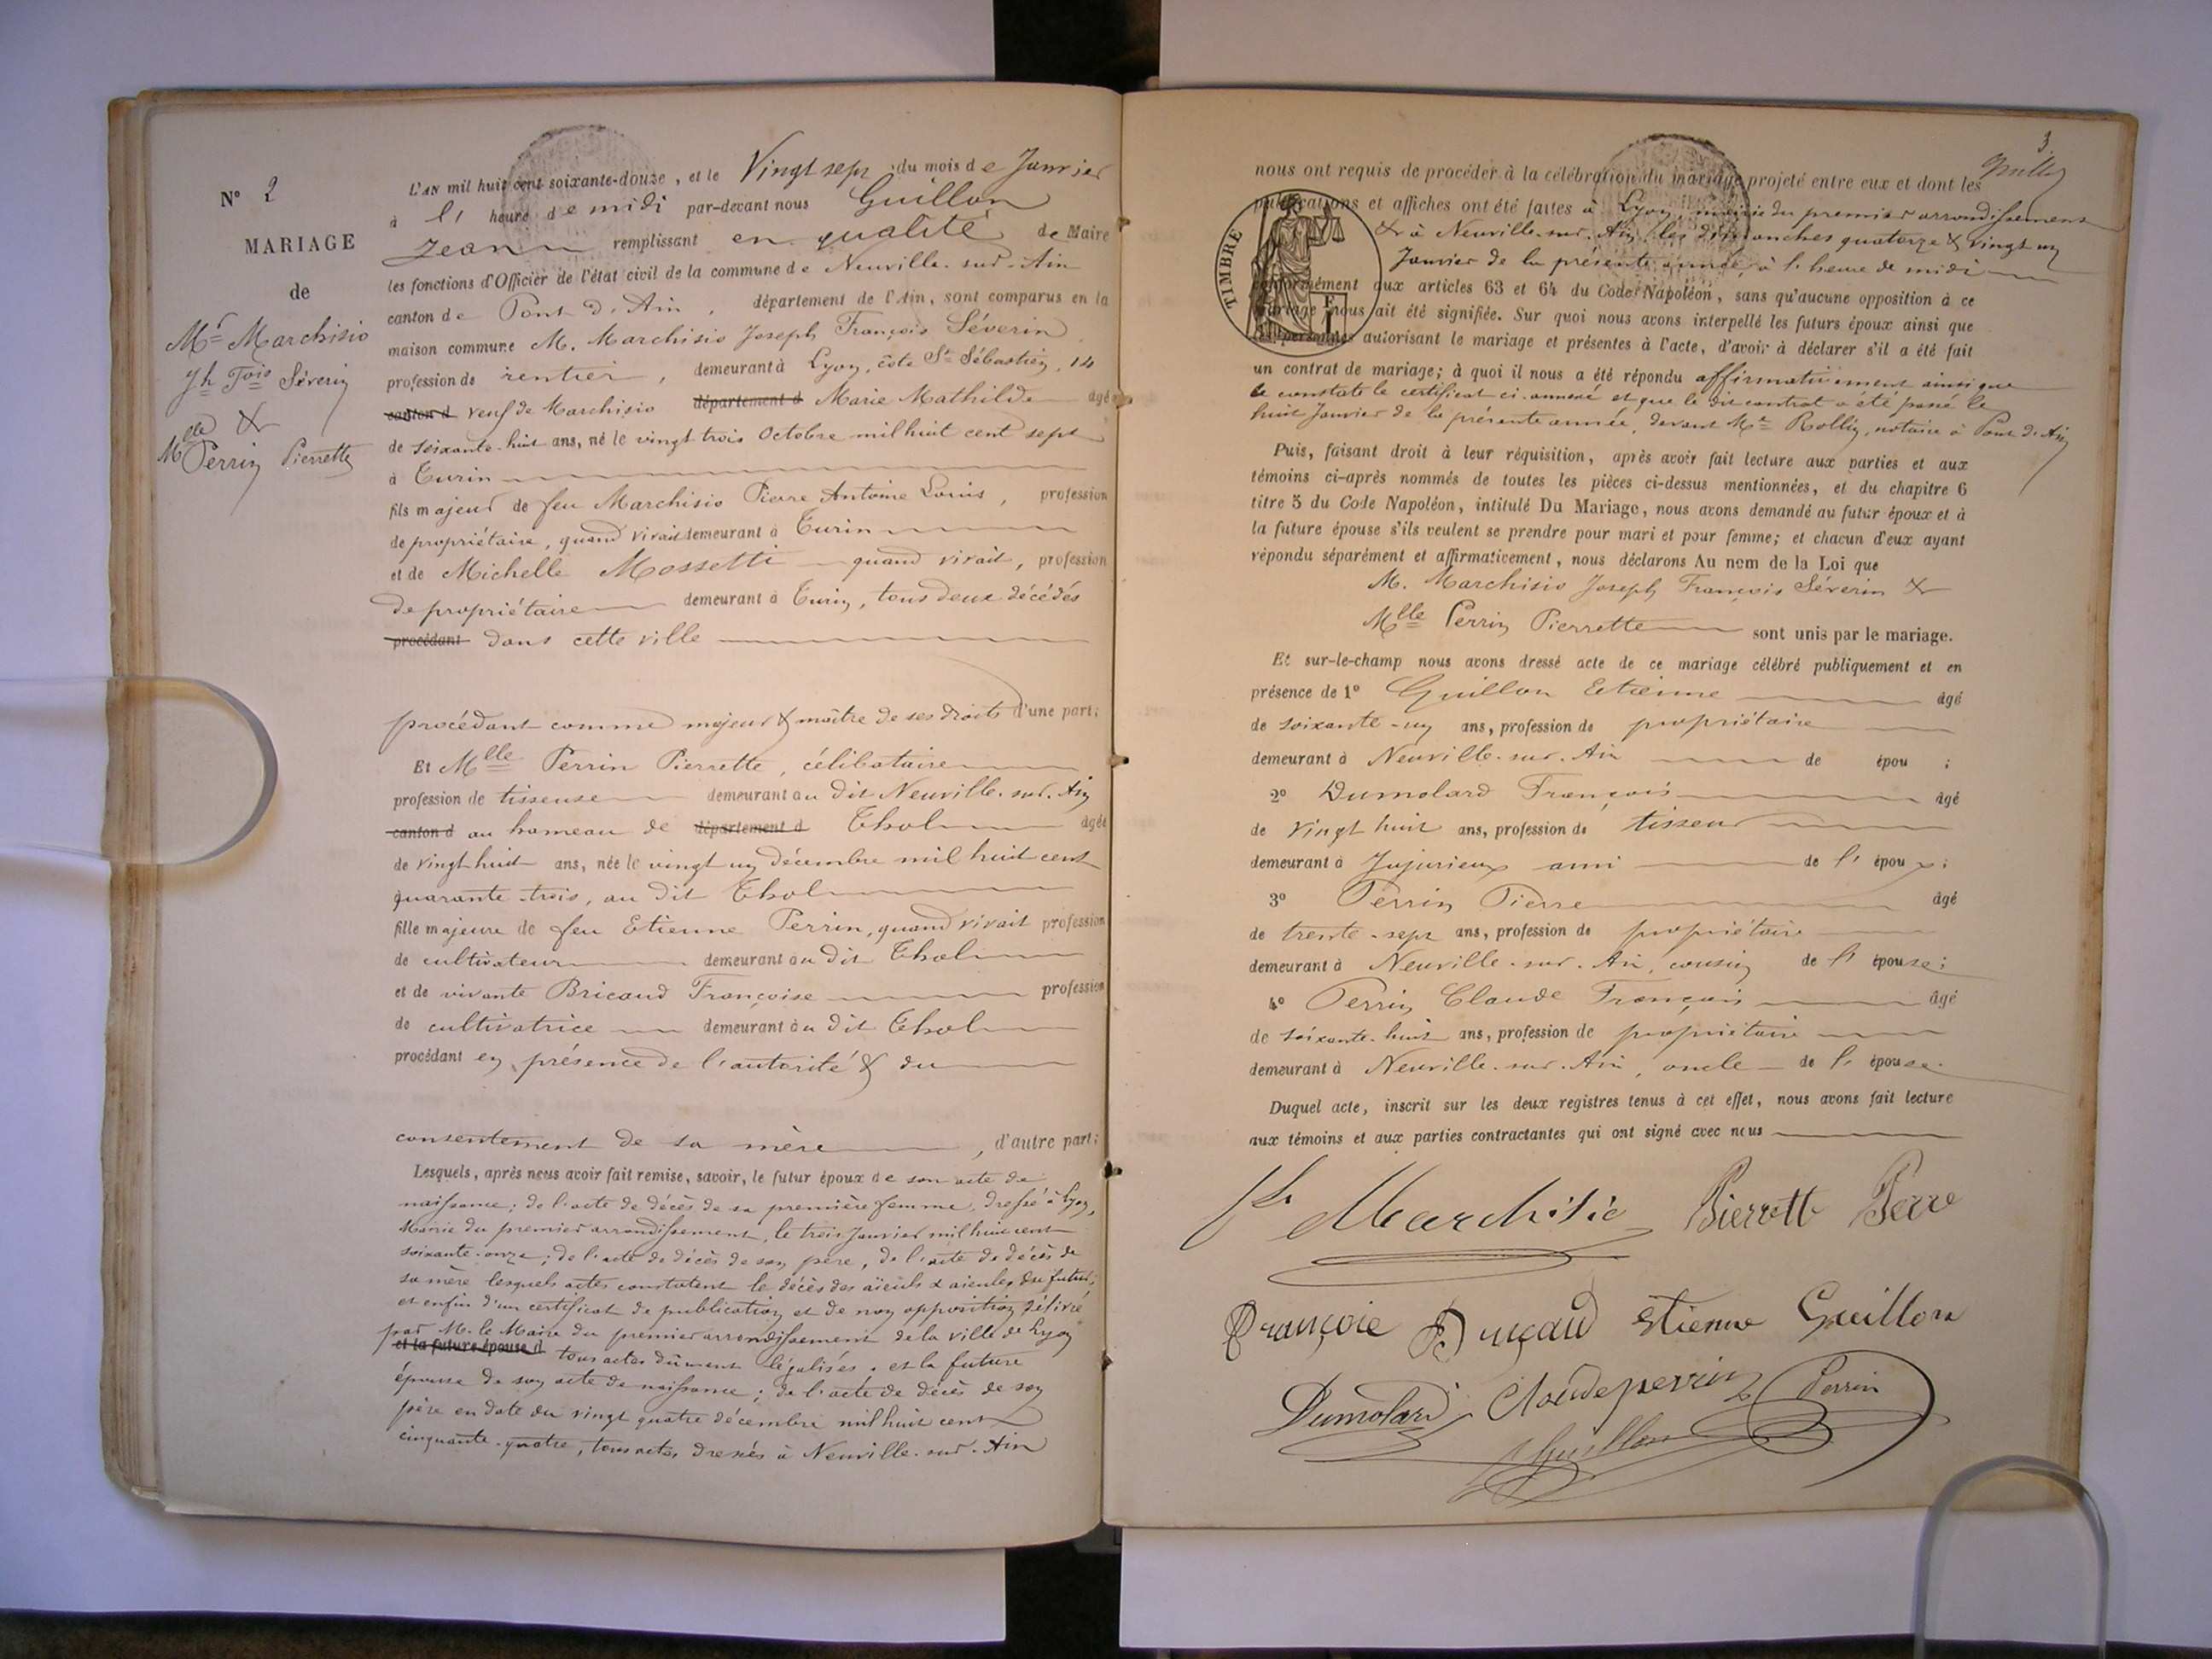 N° 2
MARIAGE
de
Mr Marchisio
Jh Fois Séverin
&
Melle Perrin Pierrette
L'AN mil huit cent soixante-douze, et le Vingt sept du mois de Janvier
à l' heure de midi par-devant nous Guillon
Jean remplissant en qualité de Maire
les fonctions d'Officier de l'état civil de la commune de Neuville-sur-Ain
canton de Pont d'Ain, département de l'Ain, sont comparus en la
maison commune M. Marchisio Joseph François Séverin
profession de rentier, demeurant à Lyon, côte St Sébastien, 14
canton d veuf de Marchisio département d Marie Mathilde âgé
de soixante-huit ans, né le vingt trois Octobre mil huit cent sept
à Turin
fils majeur de feu Marchisio Pierre Antoine Louis, profession
de propriétaire, quand vivait demeurant à Turin
et de Michelle Mossetti quand vivait, profession
de propriétaire demeurant à Turin, tous deux décédés
procédant dans cette ville
procédant comme majeur & maître de ses droits d'une part;
Et Mlle Perrin Pierrette, célibataire
profession de tisseuse demeurant au dit Neuville-sur-Ain
canton d au hameau de département d Thol âgée
de vingt huit ans, née le vingt un décembre mil huit cent
quarante-trois, au dit Thol
fille majeure de feu Etienne Perrin, quand vivait profession
de cultivateur demeurant au dit Thol
et de vivante Bricaud Françoise profession
de cultivatrice demeurant au dit Thol
procédant en présence de l'autorité & du
consentement de sa mère, d'autre part;
Lesquels, après nous avoir fait remise, savoir, le futur époux de son acte de
naissance; de l'acte de décès de sa première femme, dressé à Lyon,
Mairie du premier arrondissement, le trois Janvier mil huit cent
soixante-onze; de l'acte de décès de son père, de l'acte de décès de
sa mère lesquels actes constatent le décès des aïeuls & aïeules du futur;
et enfin d'un certificat de publication et de non opposition délivré
par M. le Maire du premier arrondissement de la ville de Lyon
et la future épouse d tous actes dûment légalisés. et la future
épouse de son acte de naissance; de l'acte de décès de son
père en date du vingt quatre décembre mil huit cent
cinquante-quatre, tous actes dressés à Neuville-sur-Ain
3
nous ont requis de procéder à la célébration du mariage projeté entre eux et dont les
publications et affiches ont été faites à Lyon, mairie du premier arrondissement
& à Neuville-sur-Ain, les dimanches quatorze & vingt un
Janvier de la présente année, à l'heure de midi
TIMBRE
conformément aux articles 63 et 64 du Code Napoléon, sans qu'aucune opposition à ce
mariage nous ait été signifiée. Sur quoi nous avons interpellé les futurs époux ainsi que
les personnes autorisant le mariage et présentes à l'acte, d'avoir à déclarer s'il a été fait
un contrat de mariage; à quoi il nous a été répondu affirmativement ainsi que
le constate le certificat ci-annexé et que le dit contrat a été passé le
huit Janvier de la présente année, devant Me Rollin, notaire à Pont d'Ain
Puis, faisant droit à leur réquisition, après avoir fait lecture aux parties et aux
témoins ci-après nommés de toutes les pièces ci-dessus mentionnées, et du chapitre 6
titre 5 du Code Napoléon, intitulé Du Mariage, nous avons demandé au futur époux et à
la future épouse s'ils veulent se prendre pour mari et pour femme; et chacun d'eux ayant
répondu séparément et affirmativement, nous déclarons Au nom de la Loi que
M. Marchisio Joseph François Séverin &
Mlle Perrin Pierrette sont unis par le mariage.
Et sur-le-champ nous avons dressé acte de ce mariage célébré publiquement et en
présence de 1° Guillon Etienne âgé
de soixante-un ans, profession de propriétaire
demeurant à Neuville-sur-Ain de épou ;
2° Dumolard François âgé
de vingt huit ans, profession de tisseur
demeurant à Jujurieux ami de l'époux;
3° Perrin Pierre âgé
de trente-sept ans, profession de propriétaire
demeurant à Neuville-sur-Ain, cousin de l'épouse;
4° Perrin Claude François âgé
de soixante-huit ans, profession de propriétaire
demeurant à Neuville-sur-Ain, oncle de l'épouse.
Duquel acte, inscrit sur les deux registres tenus à cet effet, nous avons fait lecture
aux témoins et aux parties contractantes qui ont signé avec nous
Marchisio Pierrette
Etienne Guillon
Dumolard Claude perrin Perrin
Guillon